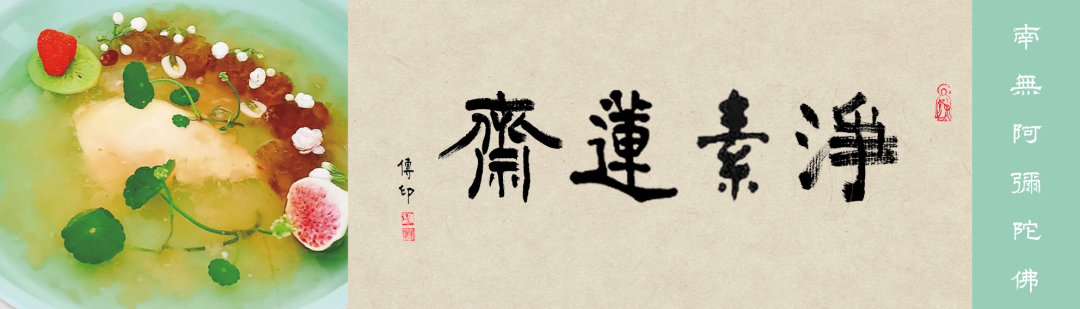 淨素蓮齋
傳印
南無阿彌陀佛